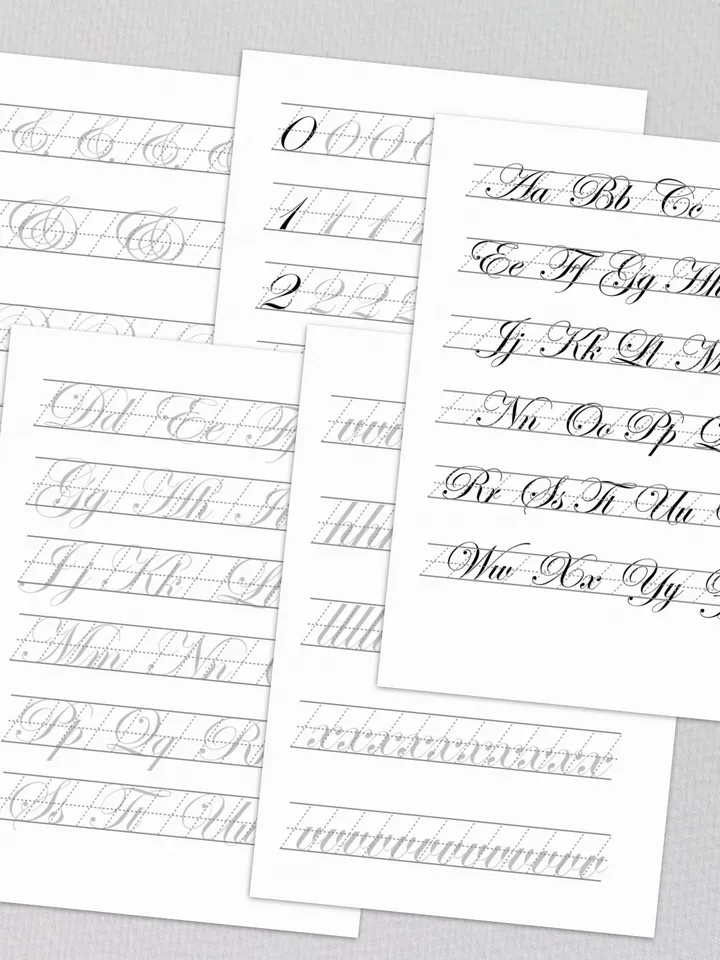 & & & &
& &
0 0 0 0
1 1 1 1
2 2 2 2
Aa Bb Cc
Ee Ff Gg Hh
Jj Kk Ll M
Nn Oo Pp Q
Rr Ss Tt Uu
Ww Xx Yy
Dd Ee Ff
Gg Hh
Jj Kk Ll
Mm Nn
Pp Qq R
Ss Tt Uu
xxxxxxxxxxx
vvvvvvvvvvvv